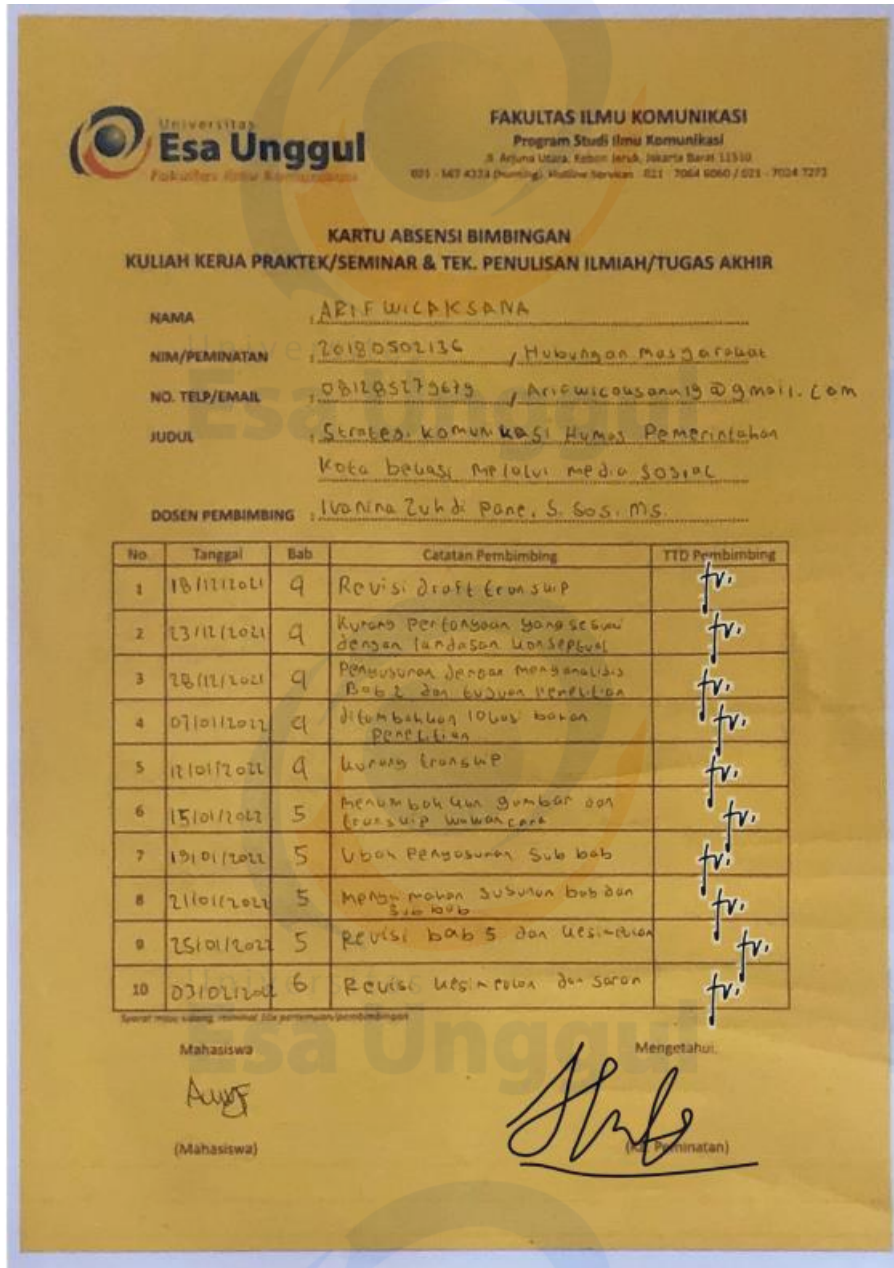 Universitas
Esa Unggul
Fakultas Ilmu Komunikasi
FAKULTAS ILMU KOMUNIKASI
Program Studi Ilmu Komunikasi
Jl. Arjuna Utara, Kebon Jeruk, Jakarta Barat 11510
021 - 567 4223 (hunting), Hotline Services : 021 - 7064 6060 / 021 - 7024 7273
KARTU ABSENSI BIMBINGAN
KULIAH KERJA PRAKTEK/SEMINAR & TEK. PENULISAN ILMIAH/TUGAS AKHIR
NAMA : ARIF WICAKSANA
NIM/PEMINATAN : 20180502136 / Hubungan masyarakat
NO. TELP/EMAIL : 081285279679 / Arifwicaksana19@gmail.com
JUDUL : Strategi komunikasi Humas Pemerintahan
Kota bekasi melalui media sosial
DOSEN PEMBIMBING : Ivanina Zuhdi Pane, S. Sos. MS.
No Tanggal Bab Catatan Pembimbing TTD Pembimbing
1 18/12/2021 4 Revisi draft transkip
2 23/12/2021 4 Kurang Pertanyaan yang sesuai
dengan landasan konseptual
3 28/12/2021 4 Penyusunan dengan menganalisis
Bab 2 dan tujuan Penelitian
4 07/01/2022 4 ditambahkan lokus
Penelitian
5 12/01/2022 4 kurang transkip
6 15/01/2022 5 Menambahkan gambar dan
transkip wawancara
7 19/01/2022 5 Ubah Penyusunan Sub bab
8 21/01/2022 5 susunan bab dan
Sub bab
9 25/01/2022 5 Revisi bab 5 dan kesimpulan
10 03/02/2022 6 Revisi kesimpulan dan saran
Syarat maju sidang, minimal 10x pertemuan/pembimbingan
Mahasiswa Mengetahui,
(Mahasiswa) Peminatan)
Universitas
Esa Unggul
Universitas
Esa Unggul